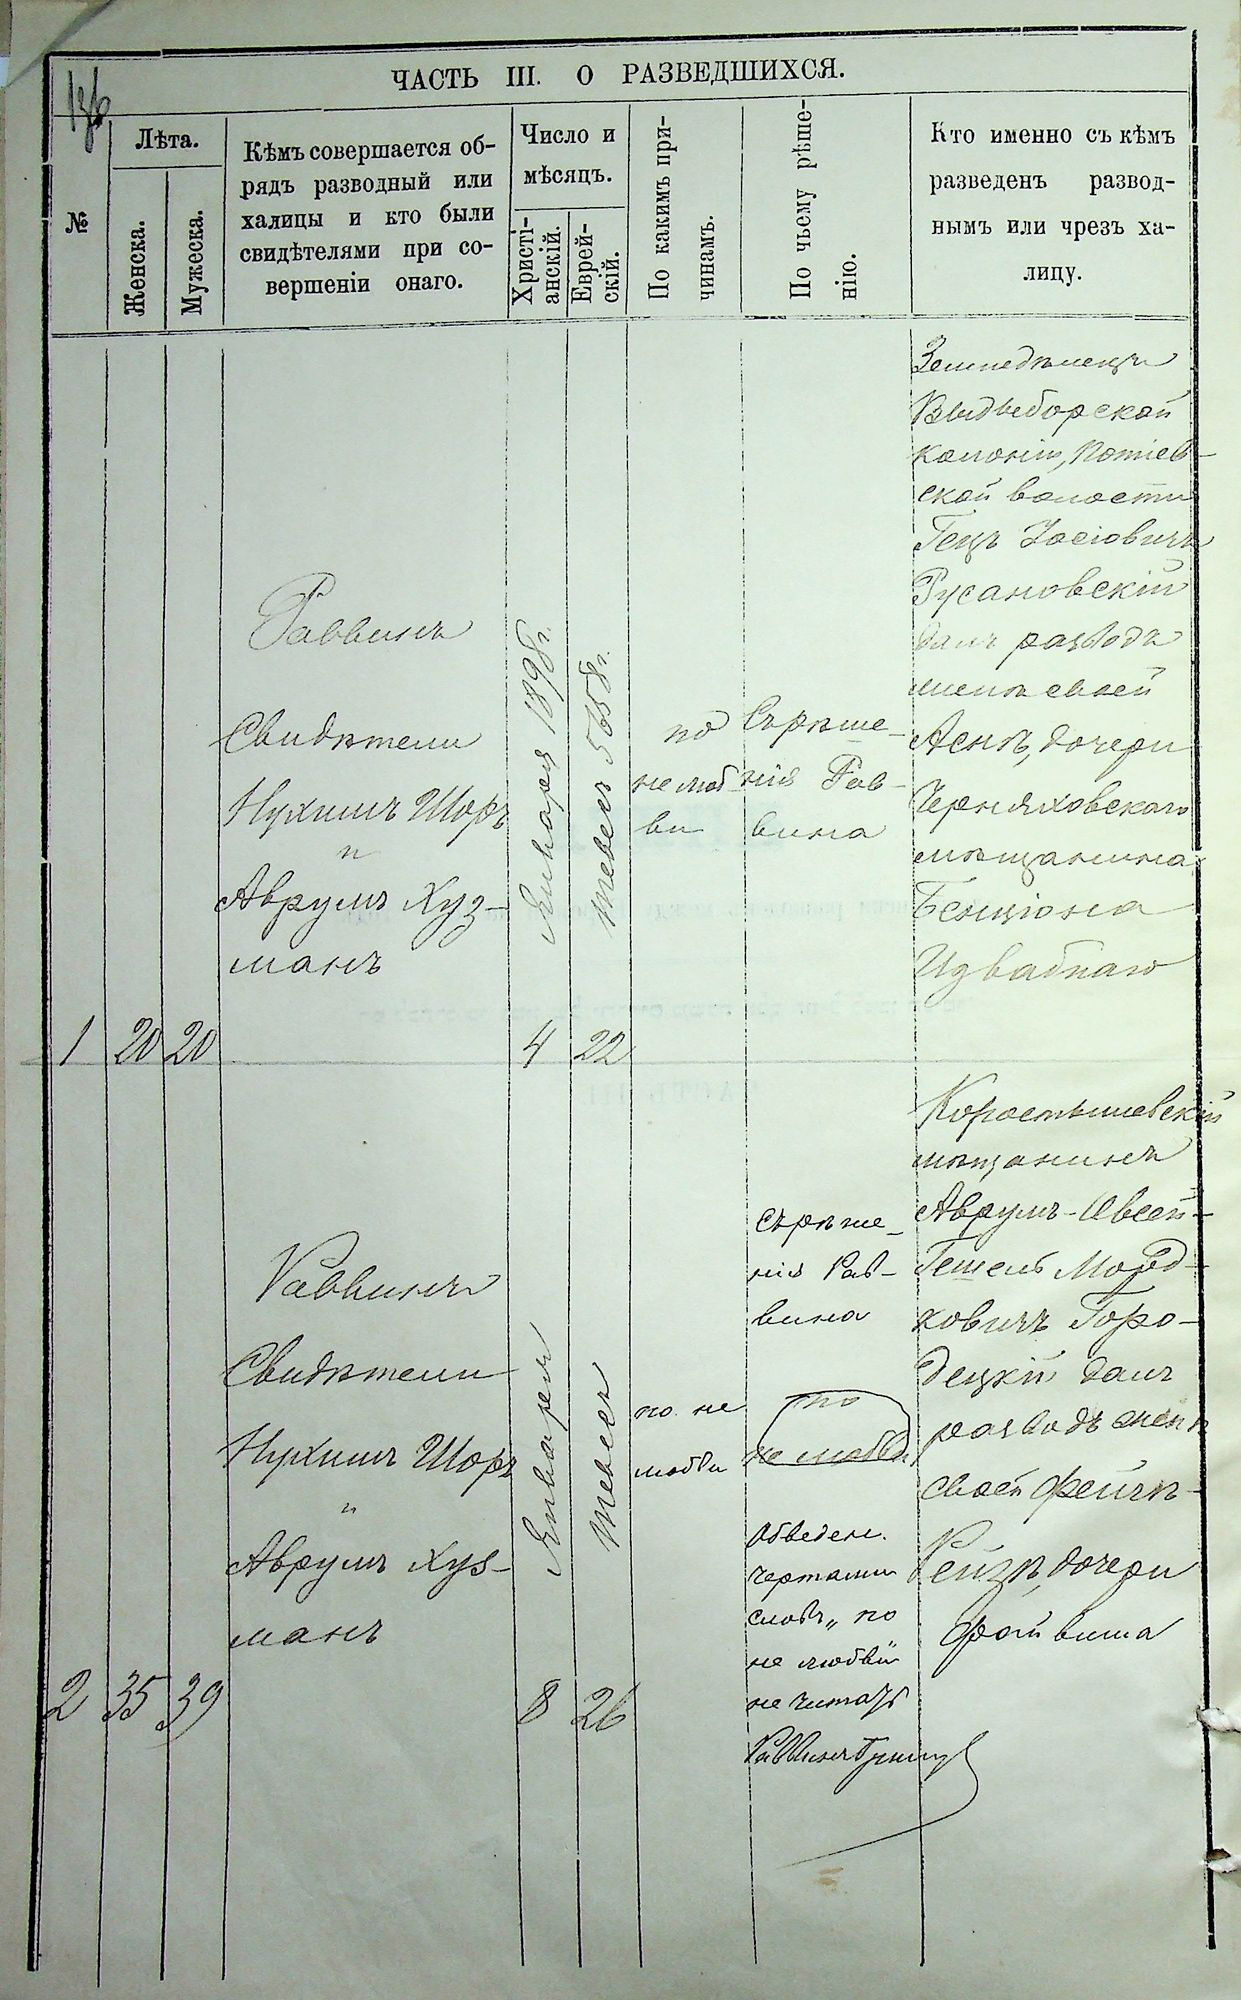 ЧАСТЬ III. О РАЗВЕДШИХСЯ.
№
Лѣта.
Женска.
Мужеска.
Кѣмъ совершается об-
рядъ разводный или
халицы и кто были
свидѣтелями при со-
вершеніи онаго.
Число и
мѣсяцъ.
Христі-
анскій.
Еврей-
скій.
По какимъ при-
чинамъ.
По чьему рѣше-
нію.
Кто именно съ кѣмъ
разведенъ развод-
нымъ или чрезъ ха-
лицу.
1
20
20
Раввинъ
Свидѣтели
Нухимъ Шоръ
и
Аврумъ Хуз-
манъ
Января 1898 г.
4
Тевесъ 5658 г.
22
по
не люб
ви
Съ рѣше-
нія Рав-
вина
Земледѣлецъ
Выдыборской
колоніи, Потіев-
ской волости
Гецъ Іосіовичъ
Русановскій
далъ разводъ
женѣ своей
Аснѣ, дочери
Черняховскаго
мѣщанина
Бенціона
2
35
39
Раввинъ
Свидѣтели
Нухимъ Шоръ
и
Аврумъ Хуз-
манъ
Января
8
Тевесъ
26
по не
любви
Съ рѣше-
нія Рав-
вина
по
не любви
Обведен.
чертами
слова „по
не любви"
не читать
Раввинъ
Коростышевскій
мѣщанинъ
Аврумъ-Овсей-
Гешель Морд-
ковичъ Горо-
децкій далъ
разводъ женѣ
своей Фейгѣ-
Рейзѣ, дочери
Фойвиша